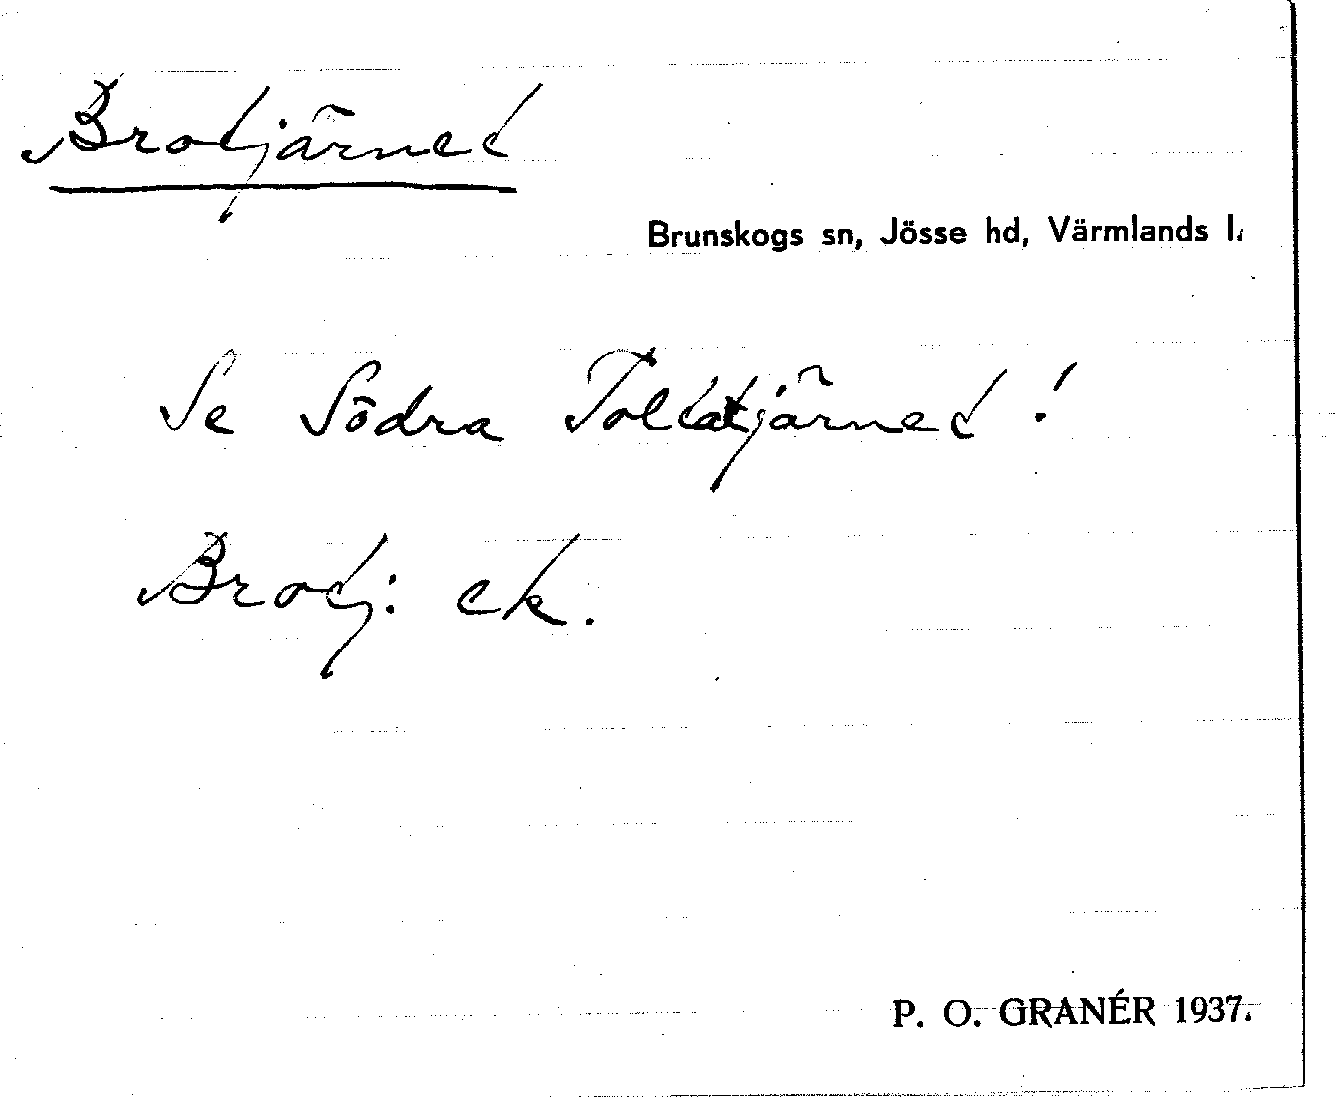 Brotjärnet
Brunskogs sn, Jösse hd, Värmlands l.
Se Södra Tolvtjärnet!
Brotj: ek.
P. O. GRANÉR 1937.